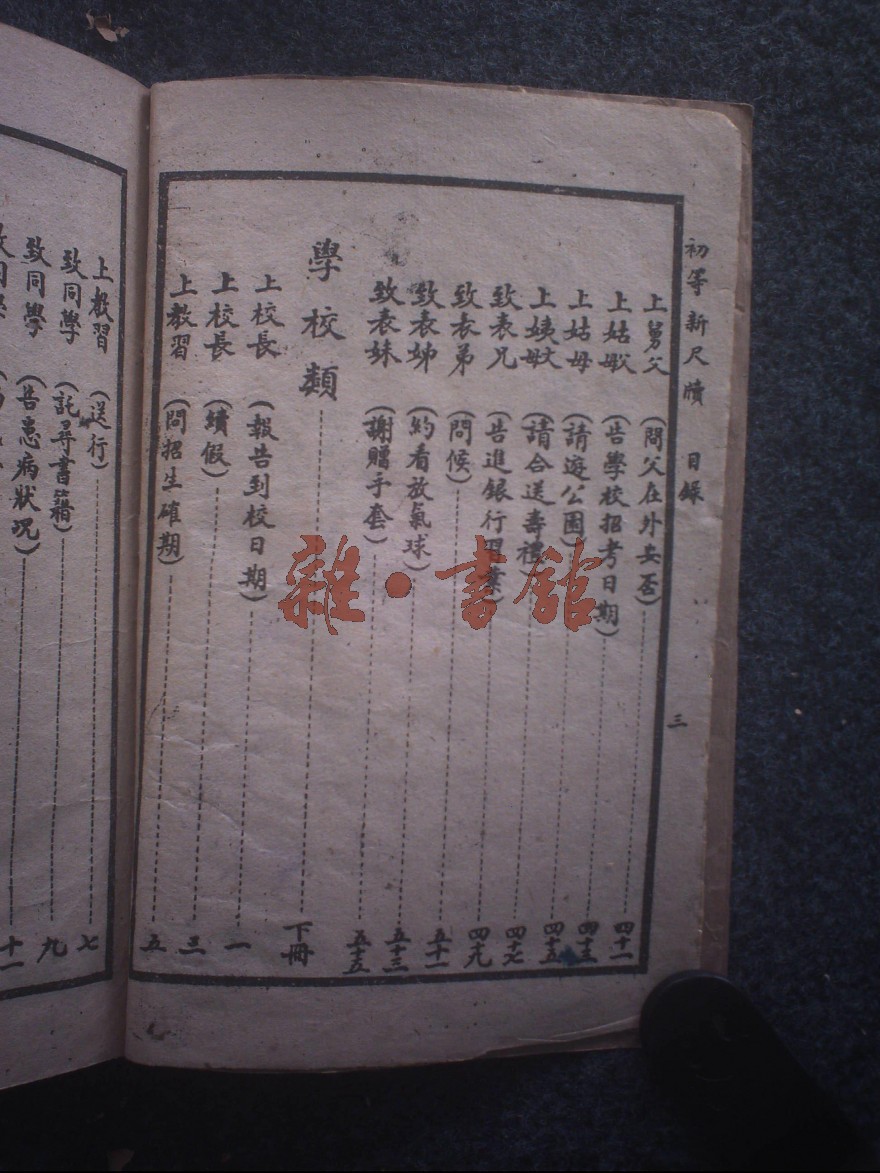 初等新尺牘 目錄 三
上舅父 (問父在外安否) 四十一
上姑丈 (告學校招考日期) 四十三
上姑母 (請遊公園) 四十五
上姨丈 (請合送壽禮) 四十七
致表兄 (告進銀行習業) 四十九
致表弟 (問候) 五十一
致表姊 (約看放氣球) 五十三
致表妹 (謝贈手套) 五十五
學校類 下冊
上校長 (報告到校日期) 一
上校長 (續假) 三
上教習 (問招生確期) 五
上教習 (送行) 七
致同學 (託尋書籍) 九
致同學 (告患病狀況) 十一
致同學
雜·書館